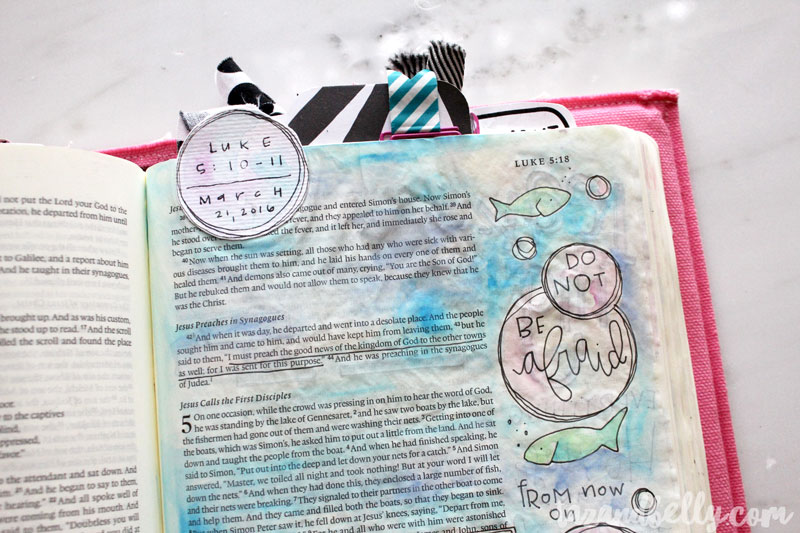 not put the Lord your God to the
he departed from him until
to Galilee, and a report about him
And he taught in their synagogues,
brought up. And as was his custom,
he stood up to read. 17 And the scroll
rolled the scroll and found the place
to the captives
blind,
oppressed,
favor."
to the attendant and sat down. And
21 And he began to say to them,
hearing." 22 And all spoke well of
were coming from his mouth. And
said to them, "Doubtless you will
LUKE
5:10-11
MARCH
21, 2016
LUKE 5:18
synagogue and entered Simon's house. Now Simon's
mother fever, and they appealed to him on her behalf. 39 And
he stood over the fever, and it left her, and immediately she rose and
began to serve them.
40 Now when the sun was setting, all those who had any who were sick with vari-
ous diseases brought them to him, and he laid his hands on every one of them and
healed them. 41 And demons also came out of many, crying, "You are the Son of God!"
But he rebuked them and would not allow them to speak, because they knew that he
was the Christ.
Jesus Preaches in Synagogues
42 And when it was day, he departed and went into a desolate place. And the people
sought him and came to him, and would have kept him from leaving them, 43 but he
said to them, "I must preach the good news of the kingdom of God to the other towns
as well; for I was sent for this purpose." 44 And he was preaching in the synagogues
of Judea.
Jesus Calls the First Disciples
5 On one occasion, while the crowd was pressing in on him to hear the word of God,
he was standing by the lake of Gennesaret, 2 and he saw two boats by the lake, but
the fishermen had gone out of them and were washing their nets. 3 Getting into one of
the boats, which was Simon's, he asked him to put out a little from the land. And he sat
down and taught the people from the boat. 4 And when he had finished speaking, he
said to Simon, "Put out into the deep and let down your nets for a catch." 5 And Simon
answered, "Master, we toiled all night and took nothing! But at your word I will let
down the nets." 6 And when they had done this, they enclosed a large number of fish,
and their nets were breaking. 7 They signaled to their partners in the other boat to come
and help them. And they came and filled both the boats, so that they began to sink.
when Simon Peter saw it, he fell down at Jesus' knees, saying, "Depart from me,
For he and all who were with him were astonished
and John, sons of
DO
NOT
BE
afraid
FROM NOW
ON